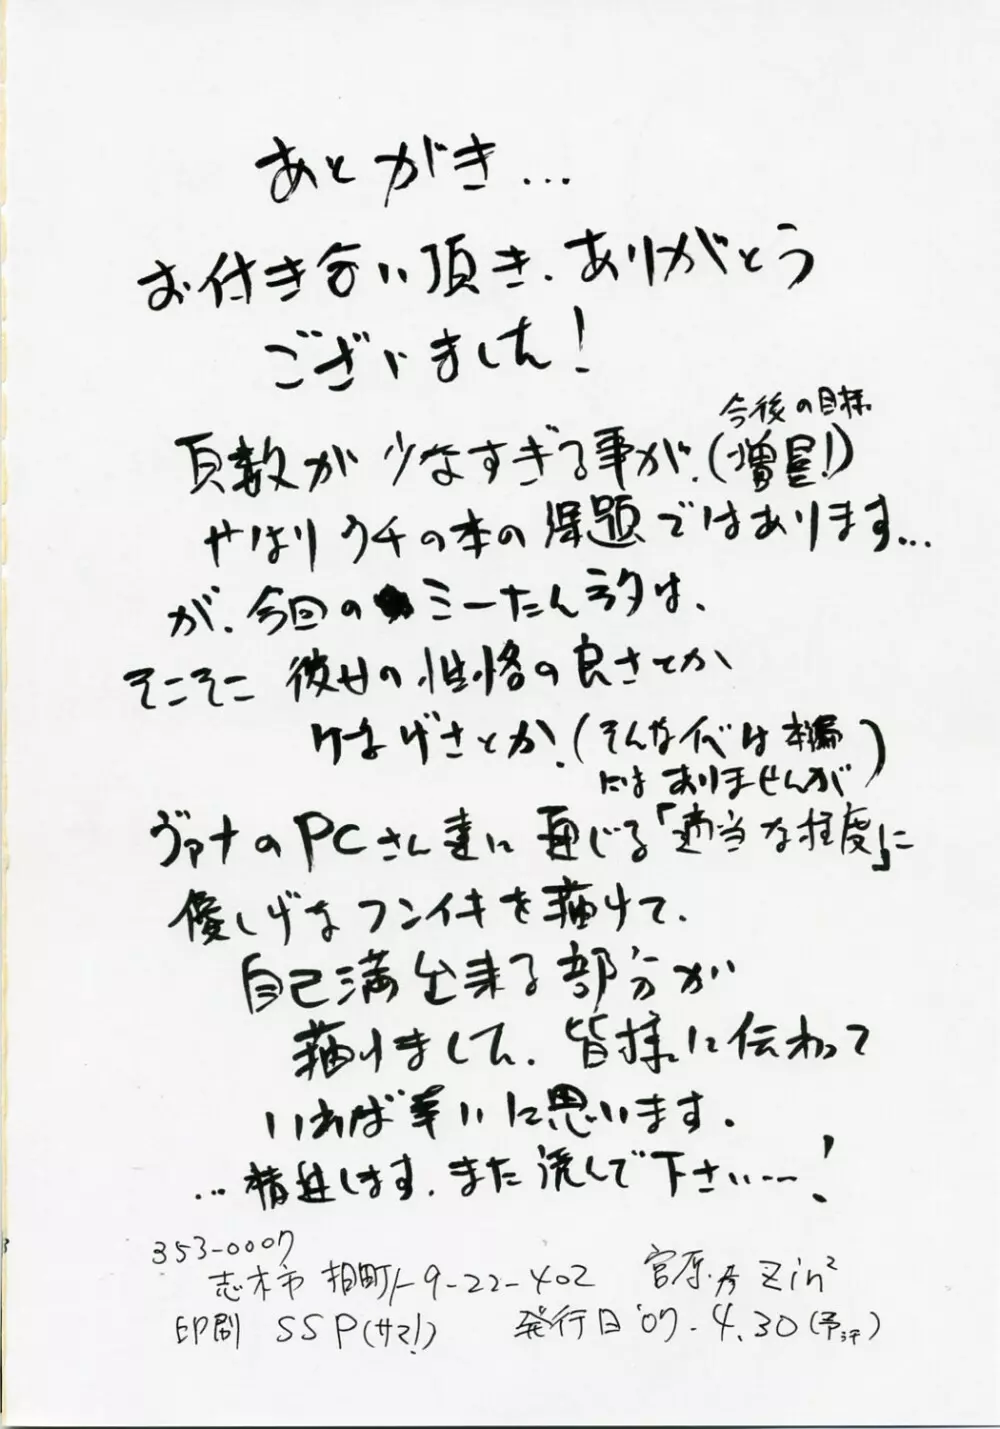 あとがき...
お付き合い頂き、ありがとう
ございました!
今後の目標
頁数が少なすぎる事が、(増量!)
やはりウチの本の課題ではあります...
が、今回のミーたんネタは、
そこそこ 彼女の性格の良さとか
けなげさとか、(そんなイベは本編
にはありませんが)
ヴァナのPCさん達に通じる「適当な程度」に
優しげなフンイキを描けて、
自己満出来る部分が
描けました、皆様に伝わって
いれば幸いに思います。
...精進します、また読んで下さい...!
353-0007
志木市 柏町1-9-22-402 宮原歩 Zin²
印刷 SSP(サマ!) 発行日 '07.4.30(予定)